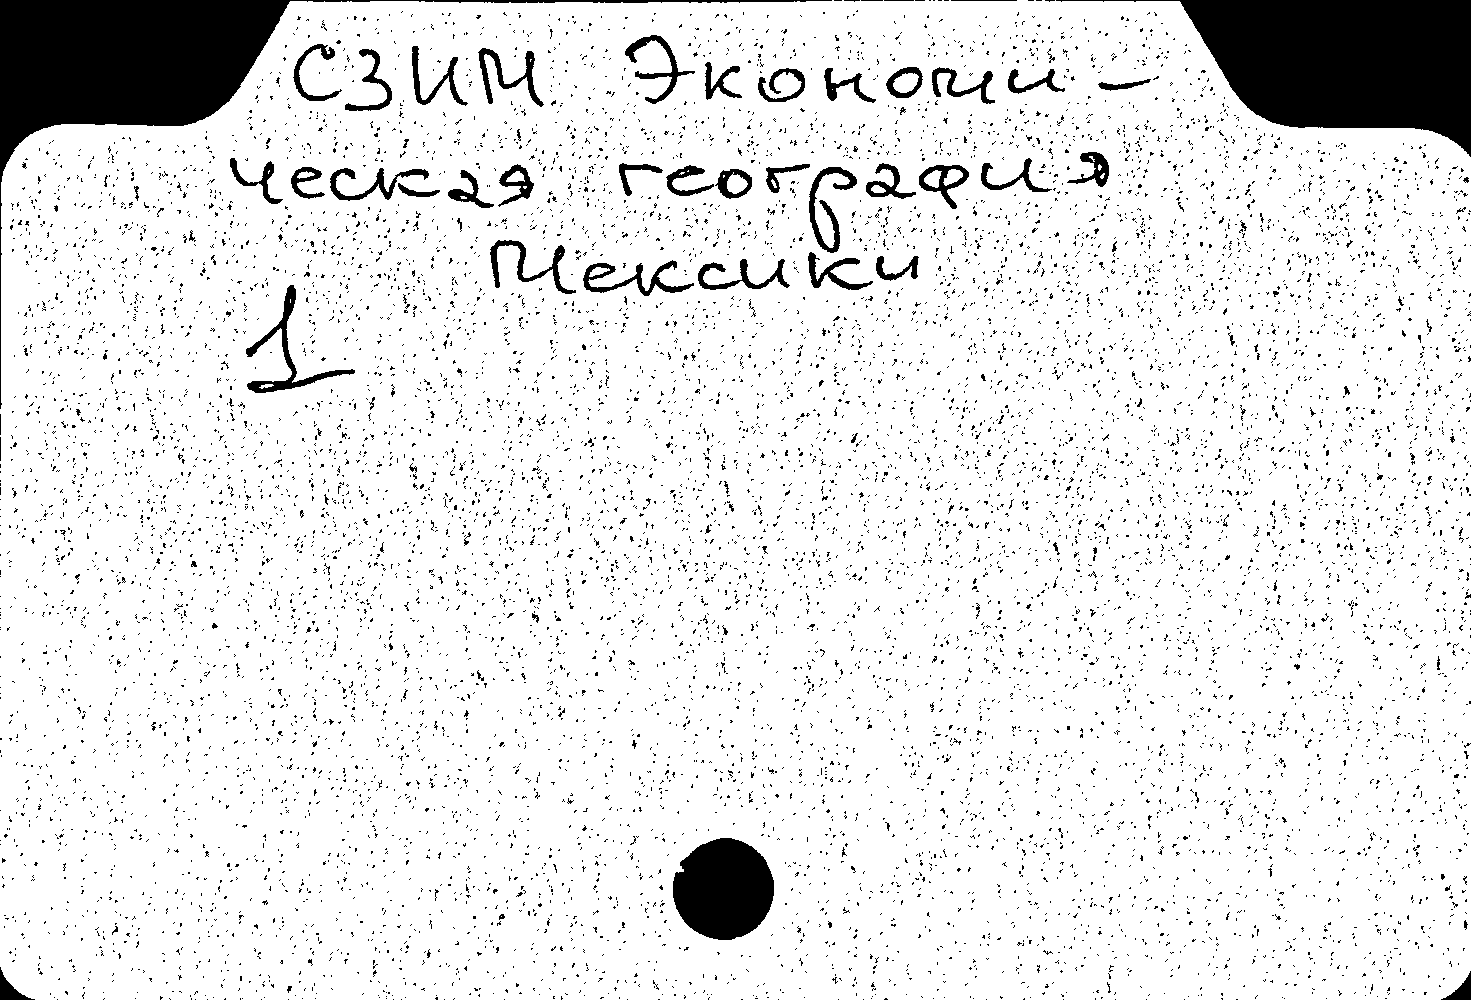 СЗИМ Экономи-
ческая география
Мексики
1